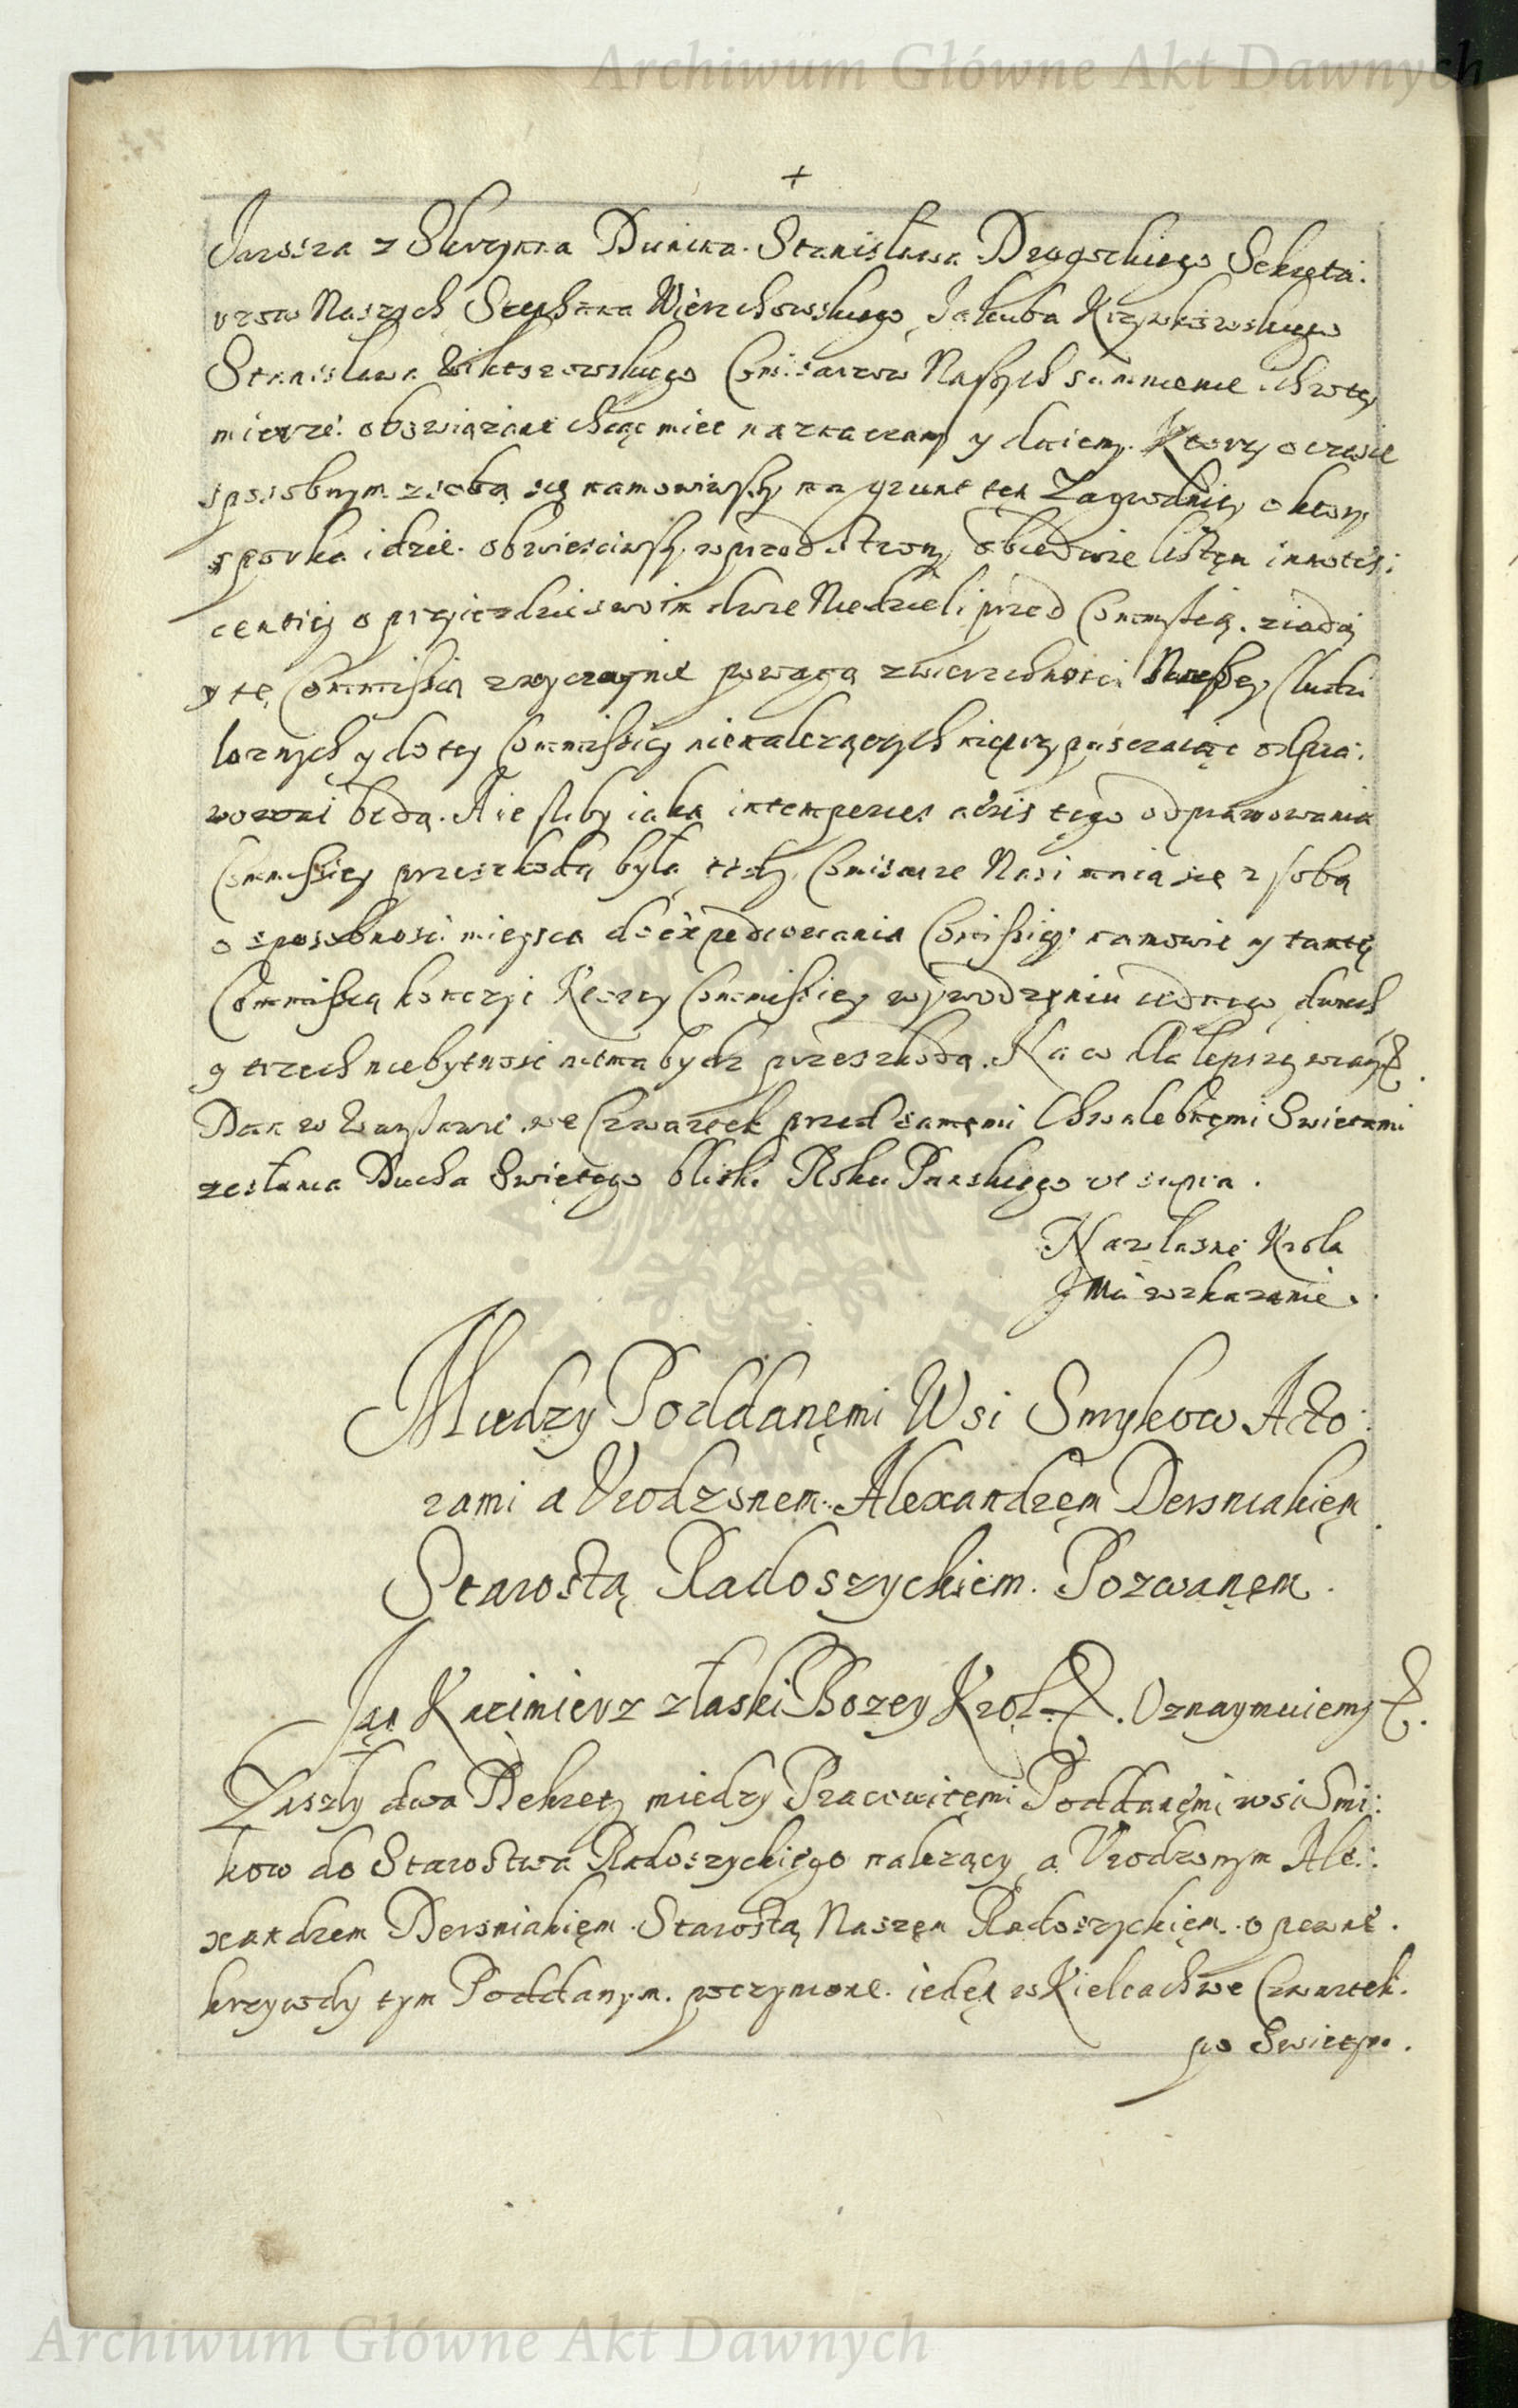 Archiwum Główne Akt Dawnych
+
Jarosza z Skrzynna Dunina. Stanisława Drogockiego Sekreta:
rzow Naszych Stephana Wierzchowskiego Jakuba Krzywkowskiego
Stanisława Comisarzow Naszych sumnienie ich w tey
mierze obowiązane chcąc miec naznaczamy y daiemy. Ktorzy o czasie
sposobnym z sobą się namowiwszy na grunt ten Zagrodnicy o ktory
sporka idzie. obwiesciwszy wprzod Strony obiedwie listem innotes:
centiey o przyiezdzie swoim dwie Niedzieli przed Commissią. ziadą
y tę Commissią zwyczaynie powagą zwierzchnosci Naszey
loznych y do tey Commissiey nienalezących nieprzypusczaiąc odpra:
wowac będą. A iesliby iaka intemperies aëris tego odprawowania
Commissiey przeszkodą była, tedy Comisarze Nasi maią się z sobą
o sposobnosc mieysca do expediowania Comissiey namowic y tamtę
Commissią konczyc Ktorey Commissiey w prowadzeniu iednego dwuch
y trzech niebytnosc niema bydz przeszkodą. Na co dla lepszey wiary &.
Dan w Warszawie we Czwartek przed samemi Chwalebnemi Swietami
zesłania Ducha Swiętego blisko Roku Panskiego ut supra.
Na własne Krola
JMci wskazanie.
Miedzy Poddanęmi Wsi Smykow Acto:
rami a Urodzonem Alexandręm Dersniakięm
Starostą Radoszyckiem. Pozwanęm.
Jan Kazimierz z łaski Bozey Krol &. Oznaymuiemy &.
Zaszły dwa Dekrety miedzy Pracowitęmi Poddanęmi wsi Smi:
kow do Starostwa Radoszyckiego nalezący a Urodzonym Ale:
xandrem Dersniakięm Starostą Naszęm Radoszyckięm. o pewne.
krzywdy tym Poddanym. poczynione. ieden w Kielcach we Czwartek.
po Swiętym.
Archiwum Główne Akt Dawnych